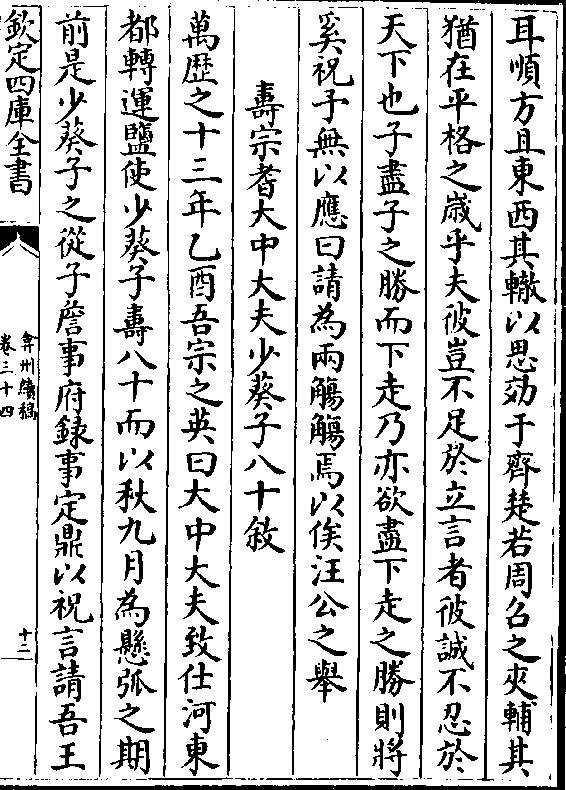 耳順方且東西其轍以思効于齊楚若周召之夾輔其
猶在平格之歲乎夫彼豈不足於立言者彼誠不忍於
天下也子盡子之勝而下走乃亦欲盡下走之勝則將
奚祝予無以應曰請為兩觴觴焉以俟汪公之舉
壽宗耆大中大夫少葵子八十敘
萬歷之十三年乙酉吾宗之英曰大中大夫致仕河東
都轉運鹽使少葵子壽八十而以秋九月為懸弧之期
前是少葵子之從子詹事府錄事定鼎以祝言請吾王
欽定四庫全書
弇州續稿
卷三十四
十二